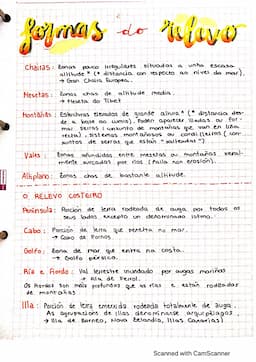 formas do relevo
Chairas: Zonas pouco irregulares situadas a unha escasa
altitude* (* distancia con respecto ao nivel do mar).
→ Gran Chaira Europea.
Mesetas: Zonas chas de altitude media.
→ Meseta do Tibet
Montañas: Estruturas elevadas de grande altura* (* distancia des-
de a base ao cumio). Poden aparecer illadas ou for-
mar serras (conxunto de montañas que van en liña
recta), sistemas montañosos ou cordilleiras (con-
xuntos de serras que están "soldadas")
Vales: Zonas afundidas entre mesetas ou montañas xeral-
mente surcadas por ríos (falla non erosión).
Altiplano: Zonas chas de bastante altitude.
O RELEVO COSTEIRO
Península: Porción de terra rodeada de auga por todos os
seus lados excepto un denominado istmo.
Cabo: Porción de terra que penetra no mar.
→ Cabo de Fornos
Golfo: Zona de mar que entra na costa.
→ Golfo pérsico.
Ría e Fiordo: Val terrestre inundado por augas mariñas
→ Ría de Ferrol.
Os fiordos son máis profundos que as rías e están rodeados
de montañas
Illa: Porción de terra emerxida rodeada totalmente de auga.
As agrupacións de illas denomínanse arquipélagos.
→ Illa de Borneo, Nova Zelandia, Illas Canarias)
Scanned with CamScanner